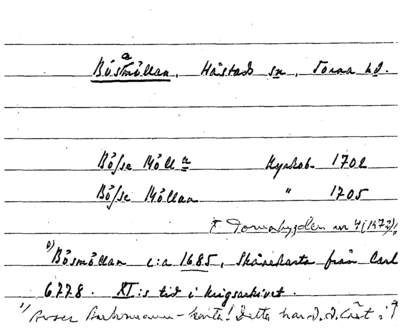 Bösmöllan, Håstads sn, Torna hd.
Böfse Möll a Kyrkob. 1702
Böfse Möllan " 1705
Tornabygden nr 4 (1973)
1) Bösmöllan c:a 1685, Skånekarta från Carl
6778. XI:s tid i krigsarkivet.
1) karta! Detta har